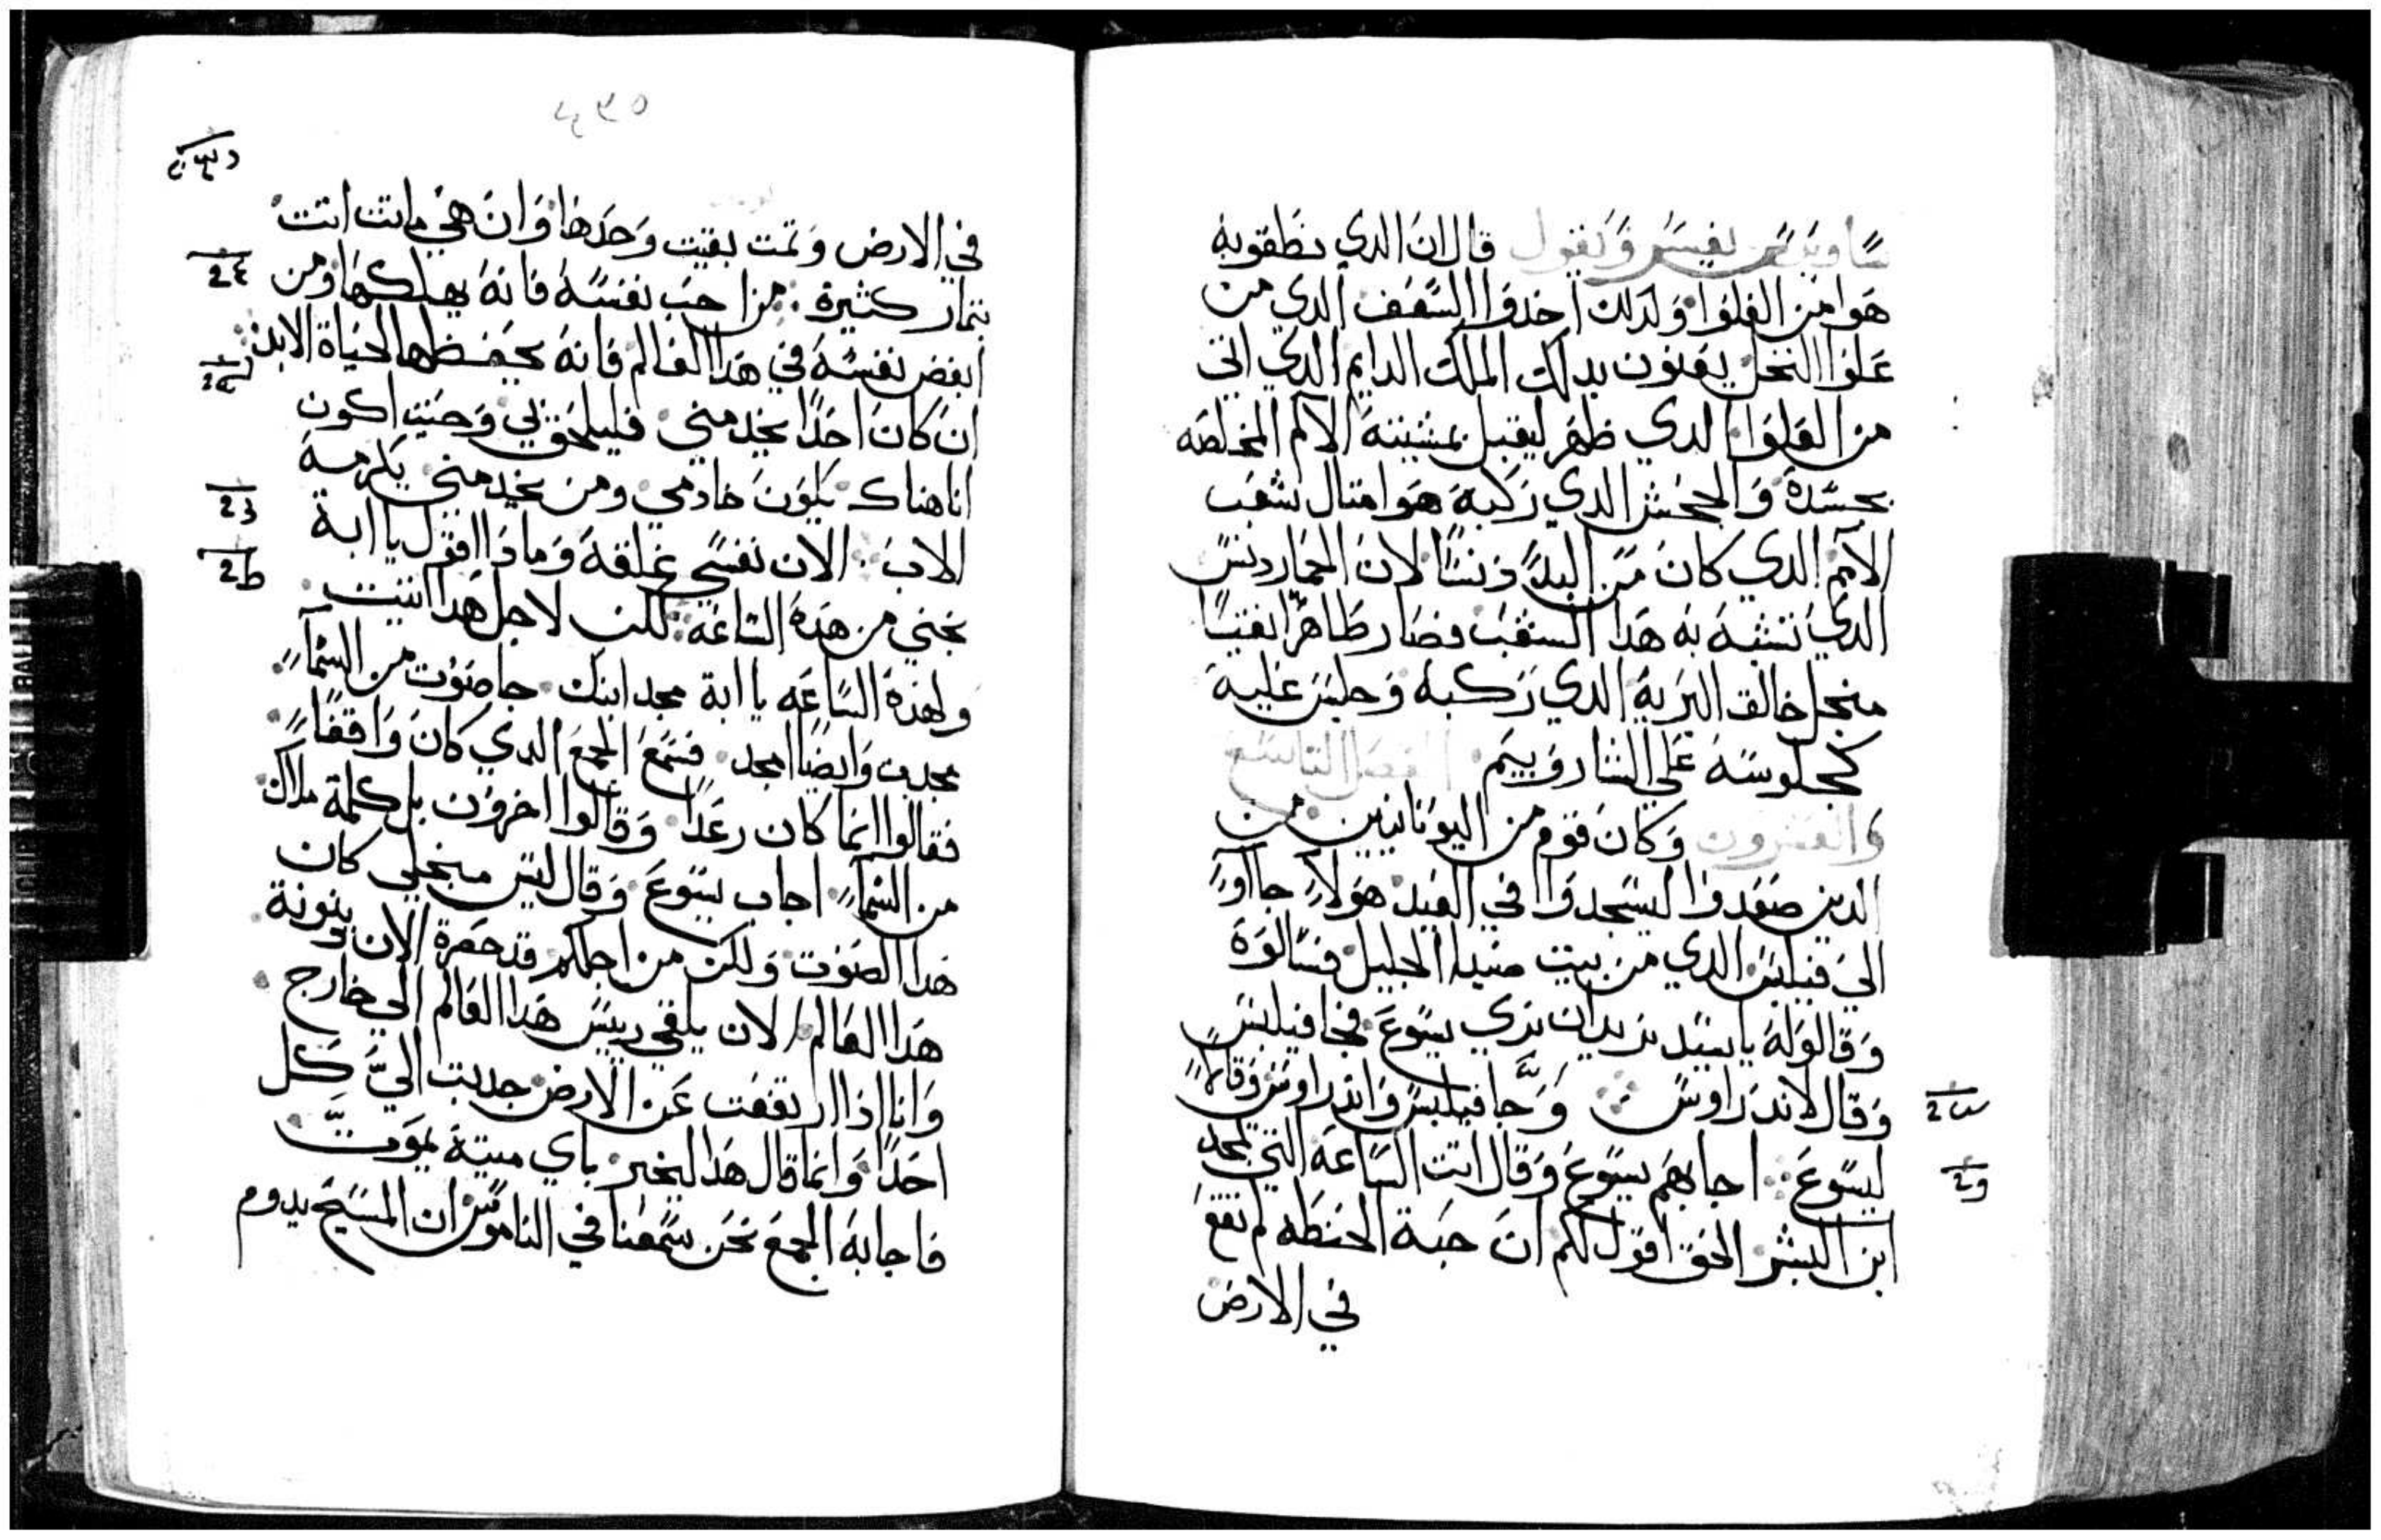 ساويرس يفسر ويقول قال ان الدي نطقو به
هوا من العلوا ولدلك اخدوا السعف الدي من
علوا النخل يعنون بدلك الملك الدايم الدي اتى
من العلوا الدي ظهر ليقبل بمشيته الالام المخلصه
بجسده والجحش الدي ركبه هوا متال شعب
الامم الدي كان من البدو نسا لان الحمار دنس
الدي تشبه به هدا الشعب فصار طاهرا نقيا
منجل خالق البريه الدي ركبه وجلس عليه
كجلوسه على الشاروبيم الفصل التاسع
والعشرون وكان قوم من اليونانيين من
الدين صعدوا ليسجدوا في العيد هولاء جاوا
الى فيلبس الدي من بيت صيدا الجليل فسالوة
وقالوله ياسيد نريد ان نري يسوع فجا فيلبس
وقال لاندراوس وجا فيلبس واندراوس وقالا
ليسوع اجابهم يسوع وقال اتت الساعة التي يمجد
ابن البشر الحق اقول لكم ان حبة الحنطه لم تقع
في الارض
في الارض وتمت بقيت وحدها وان هي ماتت اتت
بتمار كثيرة من احب نفسه فانه يهلكها ومن
ابغض نفسه في هدا العالم فانه يحفظها لحياة الابد
ان كان احدا يخدمني فليلحق بي وحيت اكون
انا هناك يكون خادمي ومن يخدمني يكرمه
الاب الان نفسي غلقة وماذا اقول يا ابة
نجني من هدة الساعة لكن لاجل هدا اتيت
ولهدة الساعه يا ابة مجد ابنك جا صوت من السماء
مجدت وايضا امجد فسمع الجمع الدي كان واقفا
فقالوا انما كان رعدا وقالوا اخرون بل كلمة ملاك
من السماء اجاب يسوع وقال ليس منجلي كان
هدا الصوت ولكن من اجلكم قد حضرة الان بنونة
هدا العالم الان يلقي رييس هدا العالم الي خارج
وانا اذا ارتفعت عن الارض جدبت الي كل
احدا وانما قال هدا ليخبر باي ميتة يموت
فاجابه الجمع نحن سمعنا في الناموس ان المسيح يدوم